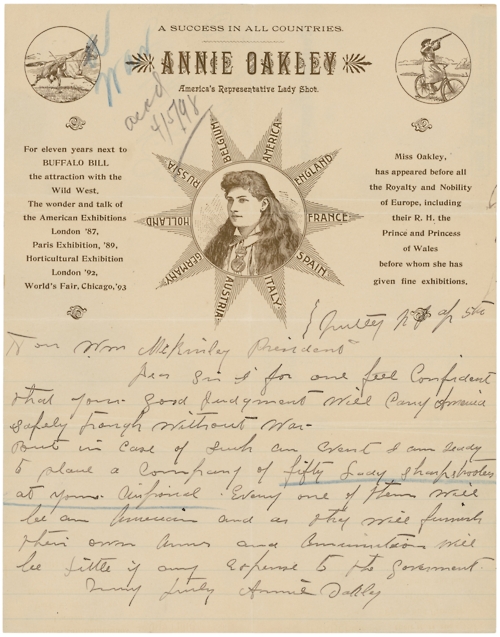 A SUCCESS IN ALL COUNTRIES.
ANNIE OAKLEY
America's Representative Lady Shot.
W War
ackd
4/5/98
For eleven years next to
BUFFALO BILL
the attraction with the
Wild West.
The wonder and talk of
the American Exhibitions
London '87,
Paris Exhibition, '89,
Horticultural Exhibition
London '92,
World's Fair, Chicago, '93
BELGIUM
AMERICA
ENGLAND
FRANCE
SPAIN
ITALY
AUSTRIA
GERMANY
HOLLAND
RUSSIA
Miss Oakley,
has appeared before all
the Royalty and Nobility
of Europe, including
their R. H. the
Prince and Princess
of Wales
before whom she has
given fine exhibitions.
Nutley N J Ap 5th
Hon Wm McKinley President
Dear Sir I for one feel Confident
that your good judgment will carry America
safely through without War-
But in case of such an event I am ready
to place a Company of fifty lady sharpshooters
at your disposal. Every one of them will
be an American and as they will furnish
their own Arms and Ammunition will
be little if any expense to the government.
Very truly Annie Oakley